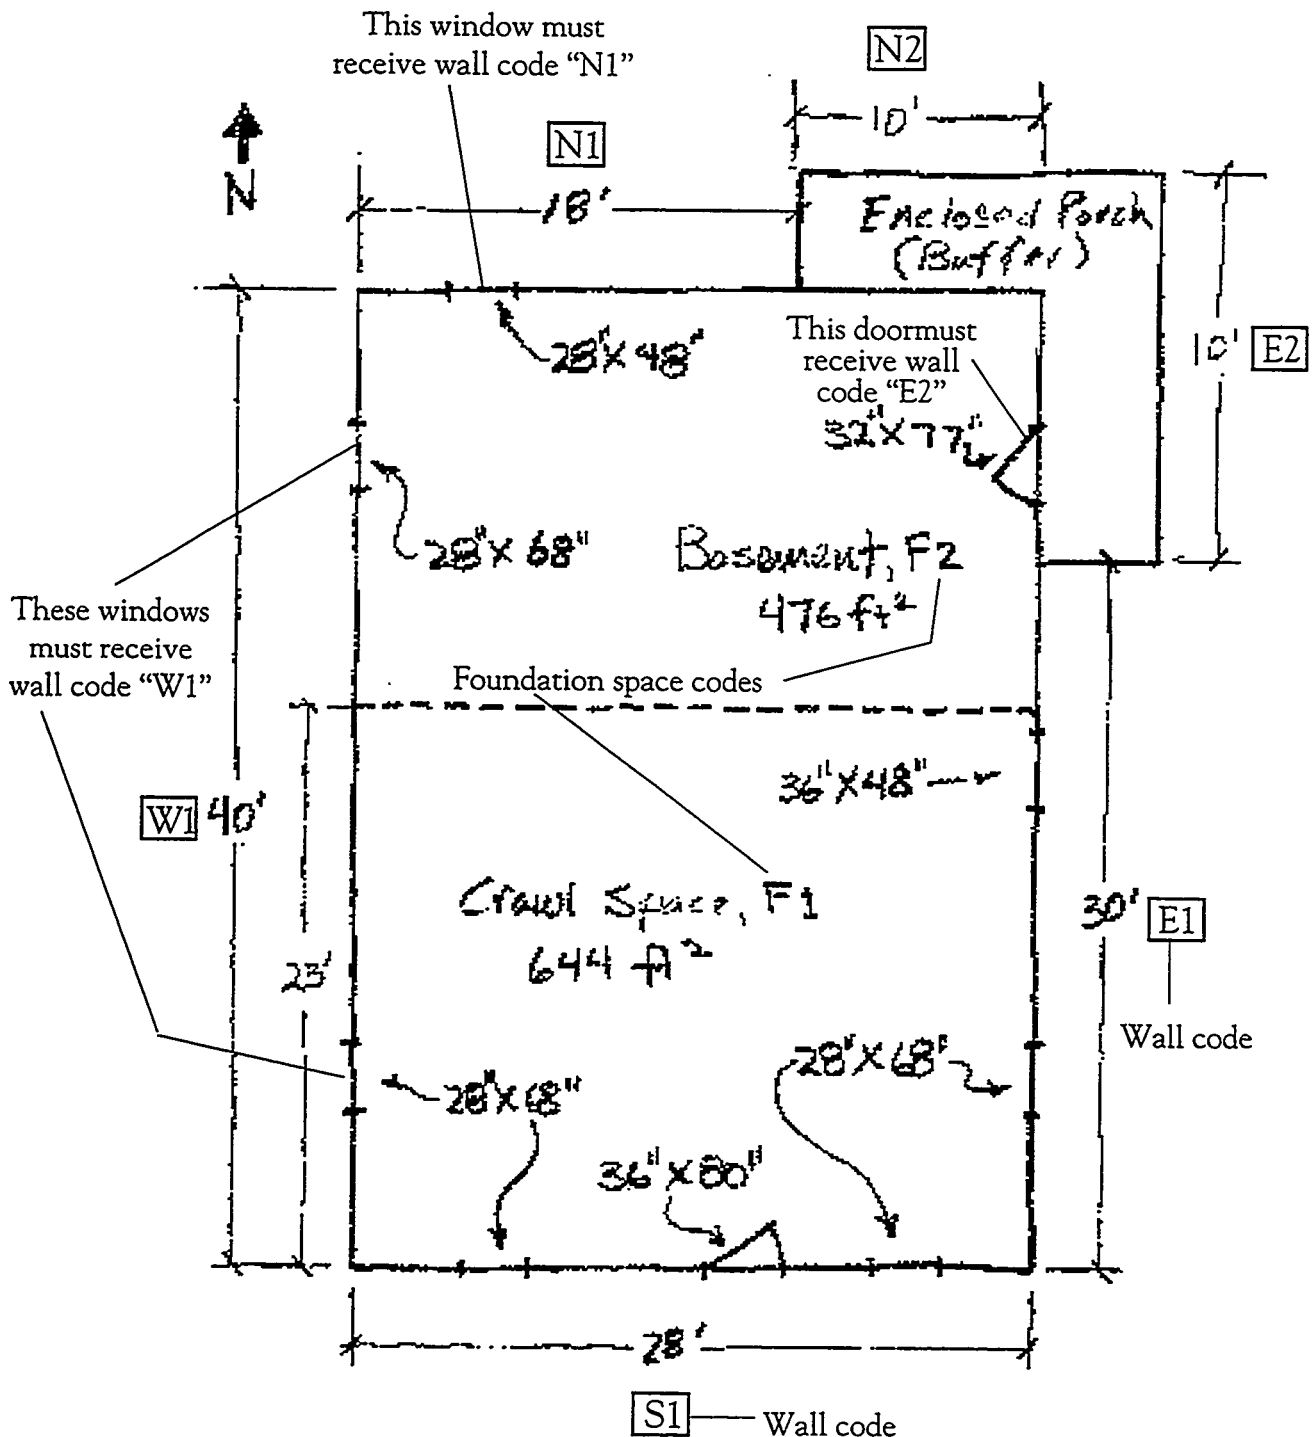 This window must
receive wall code “N1”
N2
10'
N1
N
18'
Enclosed Porch
(Buffer)
28"X48"
This doormust
receive wall
code “E2”
32"X77"
10'
E2
28"X68"
Basement, F2
476 ft²
These windows
must receive
wall code “W1”
Foundation space codes
36"X48"
W1
40'
Crawl Space, F1
644 ft²
23'
30'
E1
Wall code
28"X68"
28"X68"
36"X80"
28'
S1
Wall code